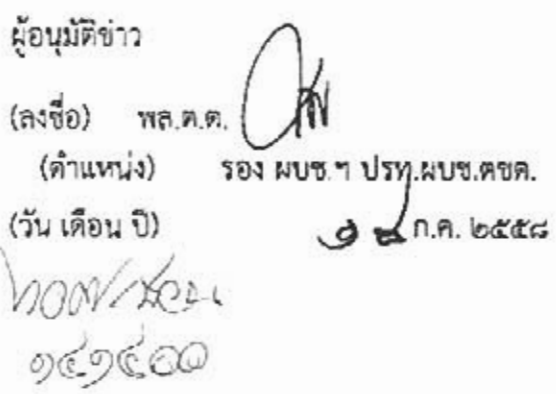 ผู้อนุมัติข่าว
(ลงชื่อ) พล.ต.ต.
(ตำแหน่ง) รอง ผบช.ฯ ปรท.ผบช.ตชด.
(วัน เดือน ปี) ก.ค. ๒๕๕๘
๑๔๑๔๐๐